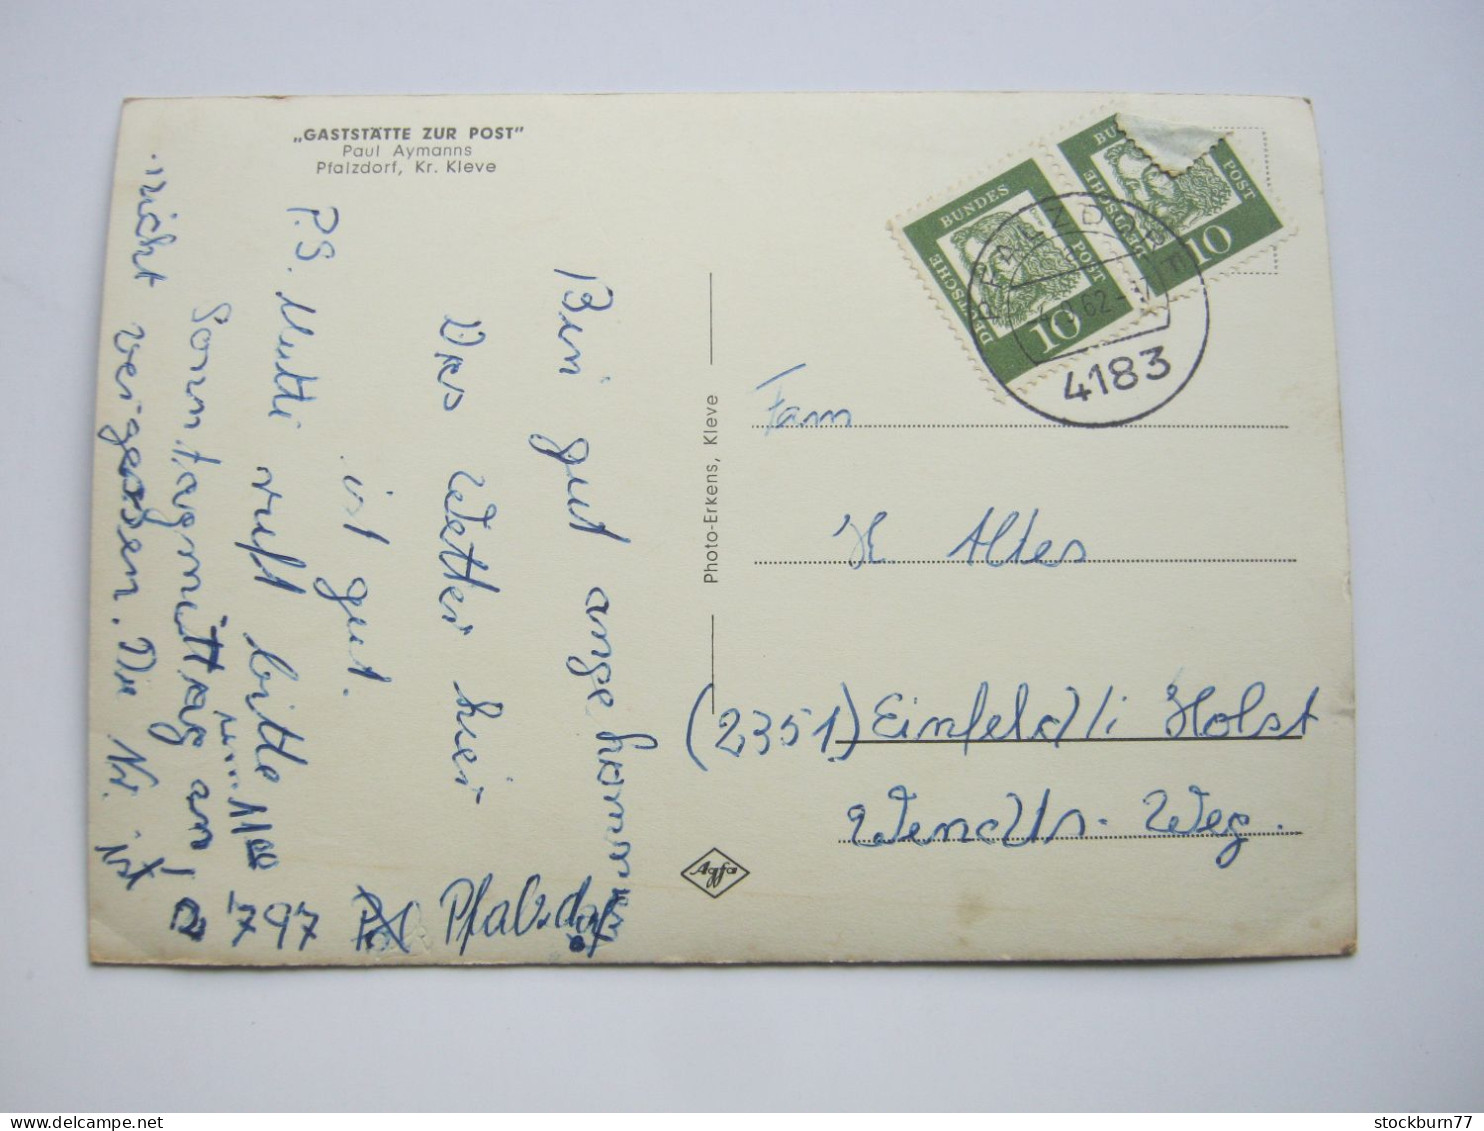 „GASTSTÄTTE ZUR POST”
Paul Aymanns
Pfalzdorf, Kr. Kleve
Bin gut angekommen
Das Wetter hier
ist gut.
P.S. Mutti ruft bitte
Sonntagmittag an,
um 11 00
nicht vergessen. Die Nr. ist
797 Pfalzdorf
Photo-Erkens, Kleve
Agfa
DEUTSCHE BUNDES POST 10
DEUTSCHE BU POST 10
62
4183
Fam
H Altes
(2351) Einfeld/i Holst
Weg.
stockburn77